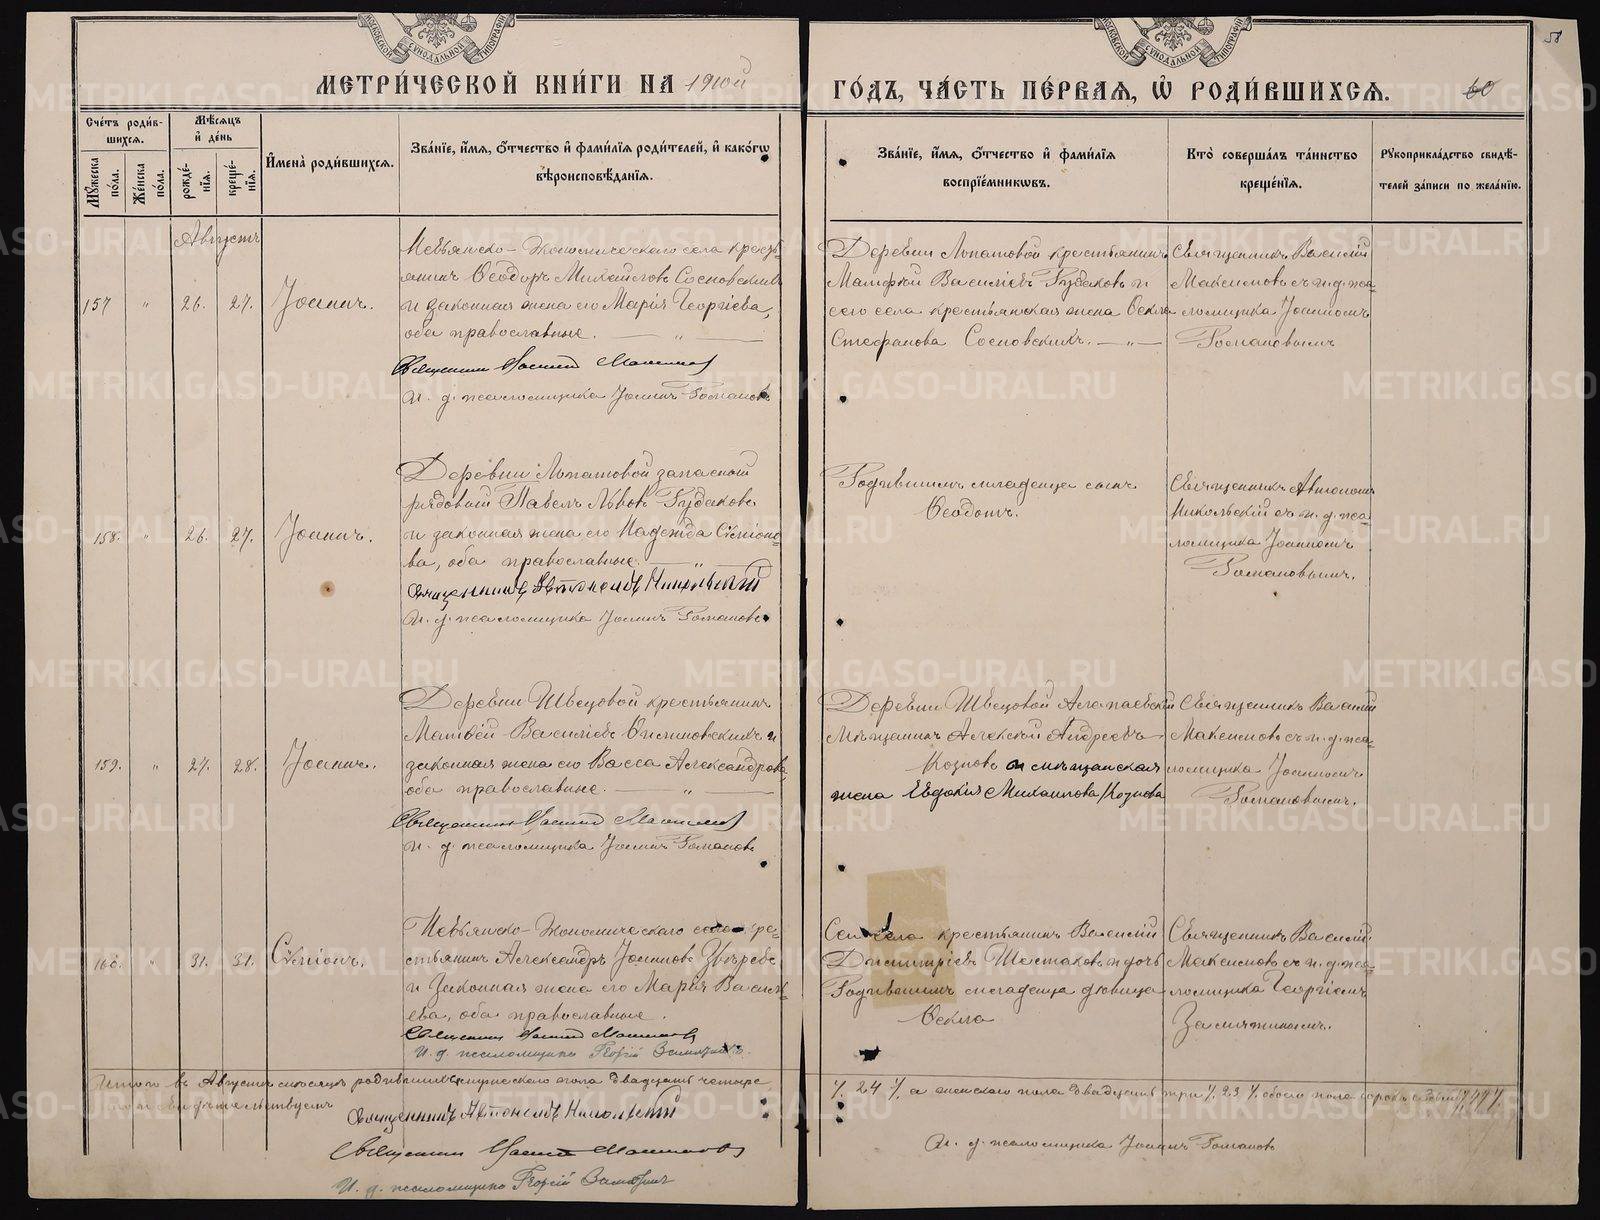 МОСКОВСКОЙ СѴНОДАЛЬНОЙ ТИПОГРАФІИ
МОСКОВСКОЙ СѴНОДАЛЬНОЙ ТИПОГРАФІИ
58
МЕТРИ́ЧЕСКОЙ КНИ́ГИ НА 1910й
ГО́ДЪ, ЧА́СТЬ ПЕ́РВАЯ, Ѡ РОДИ́ВШИХСЯ.
60
Сче́тъ роди́в-
шихся.
Мѣсяцъ
и де́нь
Мꙋжеска по́ла.
Же́нска по́ла.
рожде́-
нія.
креще́-
нія.
Имена̀ роди́вшихся.
Зва́ніе, и́мя, о́тчество и фами́лія роди́телей, и како́гѡ
вѣроисповѣ́данія.
Зва́ніе, и́мя, о́тчество и фами́лія
воспріе́мниковъ.
Кто̀ соверша́лъ та́инство
креще́нія.
Рꙋкоприкла́дство свидѣ́-
телей за́писи по жела́нію.
Августъ
157 " 26. 27. Іоаннъ.
Невьянско-Экономическаго села кресть-
янинъ Ѳеодоръ Михайловъ Сосновскихъ
и законная жена его Марія Георгіева,
оба православные. — " —
Священникъ Василій Максимовъ
И. д. псаломщика Іоаннъ Романовъ
Деревни Лопатовой крестьянинъ
Василіевъ Гудаковъ и
сего села крестьянская жена Ѳекла
Стефанова Сосновскихъ. — " —
Священникъ Василій
Максимовъ съ и. д. пса-
ломщика Іоанномъ
Романовымъ
158. " 26. 27. Іоаннъ.
Деревни Лопатовой запасный
рядовый Павелъ Львовъ Гудаковъ
и законная жена его Надежда Сѵмеоно-
ва, оба православные. — " —
Священникъ Автономъ Никольскій
И. д. псаломщика Іоаннъ Романовъ
Родившихъ младенца сынъ
Ѳеодотъ.
Священникъ Автономъ
Никольскій съ и. д. пса-
ломщика Іоанномъ
Романовымъ.
159. " 27. 28. Іоаннъ.
Деревни Швецовой крестьянинъ
Матвей Василіевъ
законная жена его Васса Александрова,
оба православные. — " —
Священникъ Василій Максимовъ
И. д. псаломщика Іоаннъ Романовъ
Деревни Швецовой Алапаевскій
мѣщанинъ Алексѣй Андреевъ
и мѣщанская
жена Евдокія Михаилова
Священникъ Василій
Максимовъ съ и. д. пса-
ломщика Іоанномъ
Романовымъ.
160. " 31. 31. Сѵмеонъ.
Невьянско-Экономическаго села кре-
стьянинъ Александръ Іоанновъ Звѣревъ
и законная жена его Марія Василь-
ева, оба православные.
Священникъ Василій Максимовъ
И. д. псаломщика Георгій Замятинъ.
Села крестьянинъ Василій
Димитріевъ Шестаковъ и дочь
Родившихъ младенца дѣвица
Ѳекла
Священникъ Василій
Максимовъ съ и. д. пса-
ломщика Георгіемъ
Замятинымъ.
Итого въ Августѣ мѣсяцѣ родившихся мужескаго пола двадцать четыре
24 а женскаго пола двадцать три 23 обоего пола сорокъ семь 47
свидѣтельствуемъ
Священникъ Автономъ Никольскій
Священникъ Василій Максимовъ
И. д. псаломщика Іоаннъ Романовъ
И. д. псаломщика Георгій Замятинъ
METRIKI.GASO-URAL.RU